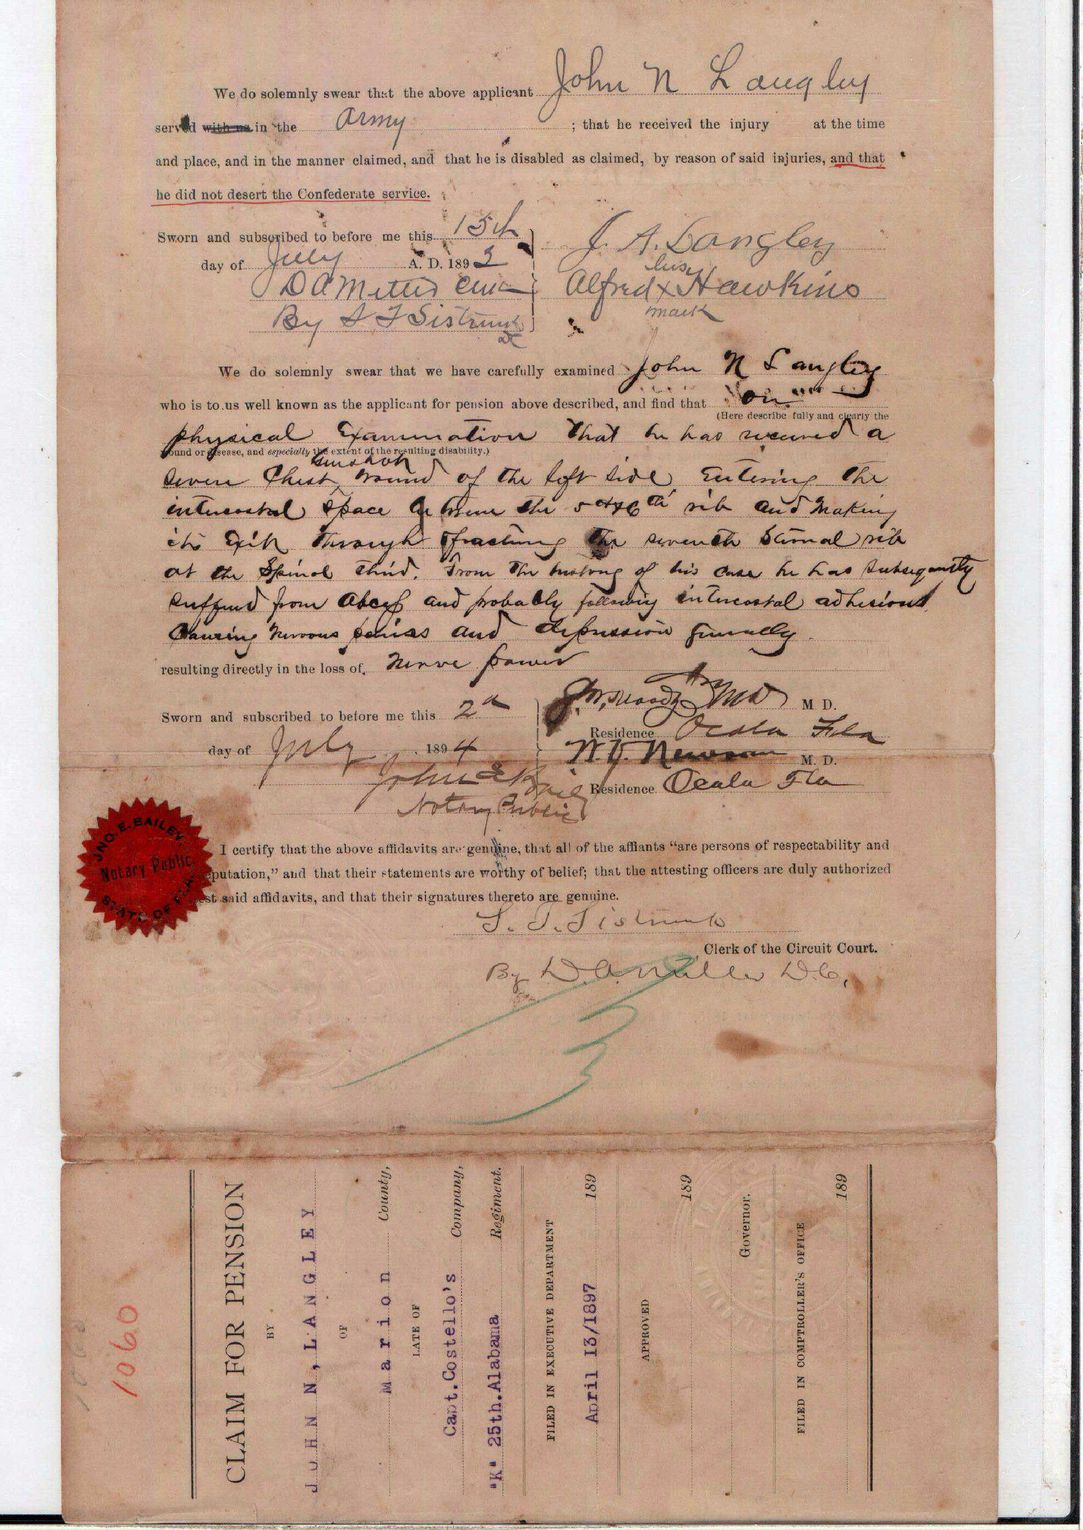 We do solemnly swear that the above applicant John N Langley
served with us in the Army ; that he received the injury at the time
and place, and in the manner claimed, and that he is disabled as claimed, by reason of said injuries, and that
he did not desert the Confederate service.
Sworn and subscribed to before me this 15th
day of July A. D. 1893
By S T Sistrunk
J. A. Langley
his
Alfred x Hawkins
mark
We do solemnly swear that we have carefully examined John N Langley
who is to us well known as the applicant for pension above described, and find that on
(Here describe fully and clearly the
physical Examination that he has received a
wound or disease, and especially the extent of the resulting disability.)
Gunshot
severe Chest wound of the left side Entering the
intercostal space between the 5th & 6th rib and Making
its Exit through fracturing the seventh Sternal rib
at the Spinal third. From the history of his case he has subsequently
suffered from Abcess and probably following intercostal adhesions
Causing Nervous and depression generally
resulting directly in the loss of. Nerve power
Sworn and subscribed to before me this 2d
day of July 1894
John E Baily
Notary Public
M D
M D.
Residence Ocala Fla
W. V. Newsom M. D.
Residence Ocala Fla
JNO. E. BAILEY
Notary Public
STATE OF FLA.
I certify that the above affidavits are genuine, that all of the affiants "are persons of respectability and
putation," and that their statements are worthy of belief; that the attesting officers are duly authorized
est said affidavits, and that their signatures thereto are genuine.
S. T. Sistrunk
Clerk of the Circuit Court.
By D. A. Miller D. C.
1060
CLAIM FOR PENSION
BY
JOHN N, LANGLEY
OF
Marion County,
LATE OF
Capt. Costello's Company,
"K" 25th. Alabama Regiment.
FILED IN EXECUTIVE DEPARTMENT
April 13/1897 189
APPROVED
189
Governor.
FILED IN COMPTROLLER'S OFFICE
189